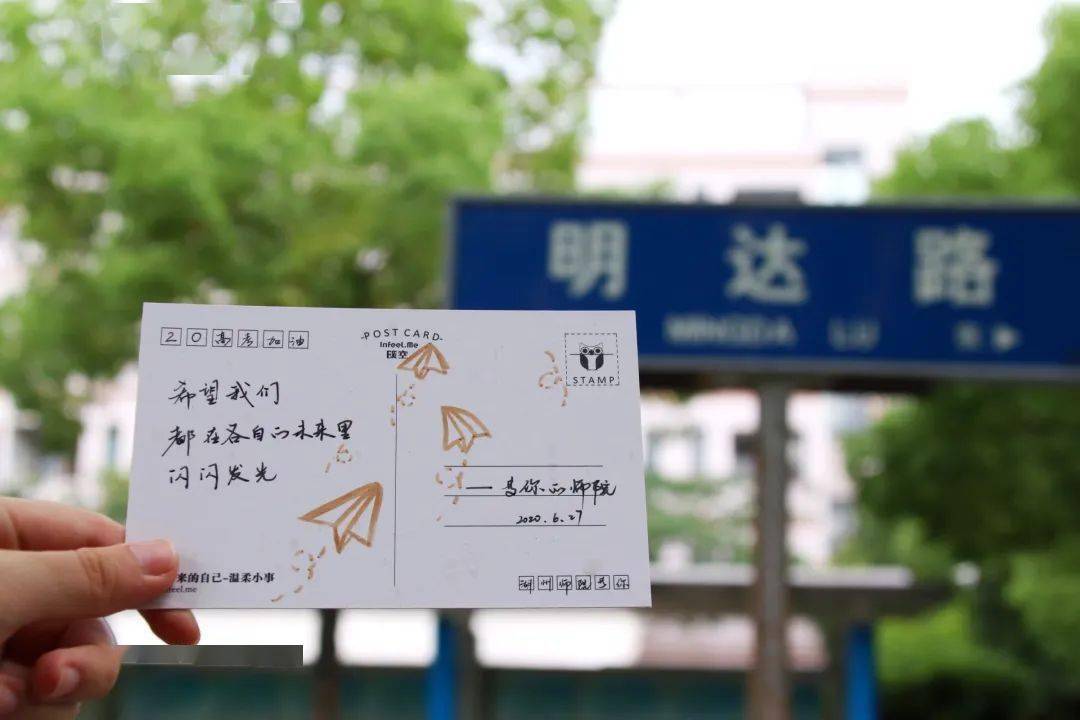 明达路
MINGDA LU
20高考加油
POST CARD
Infeel.Me
STAMP
希望我们
都在各自的未来里
闪闪发光
——等你的师院
2020.6.27
湖州师院等你
来的自己-温柔小事
feel.me